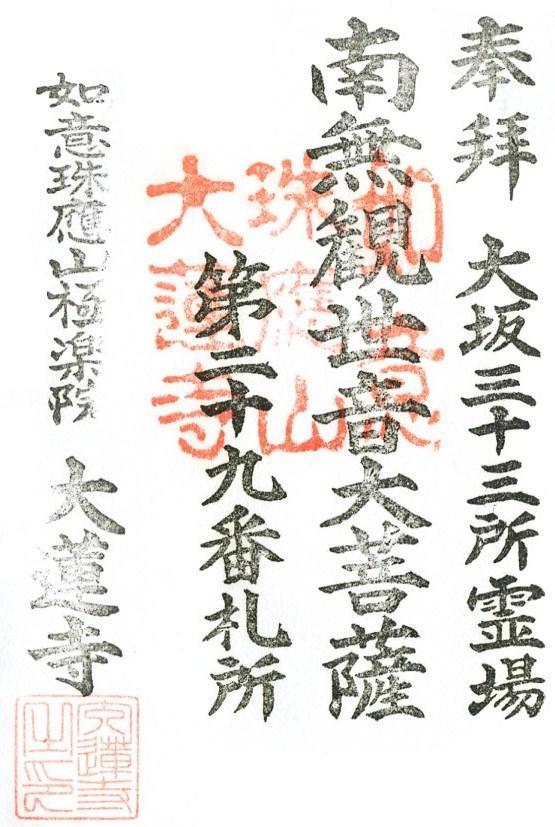 奉拝 大坂三十三所霊場
南無観世音大菩薩
第二十九番札所
如意珠應山極楽院 大蓮寺
如意
珠應山
大蓮寺
大蓮寺
之印